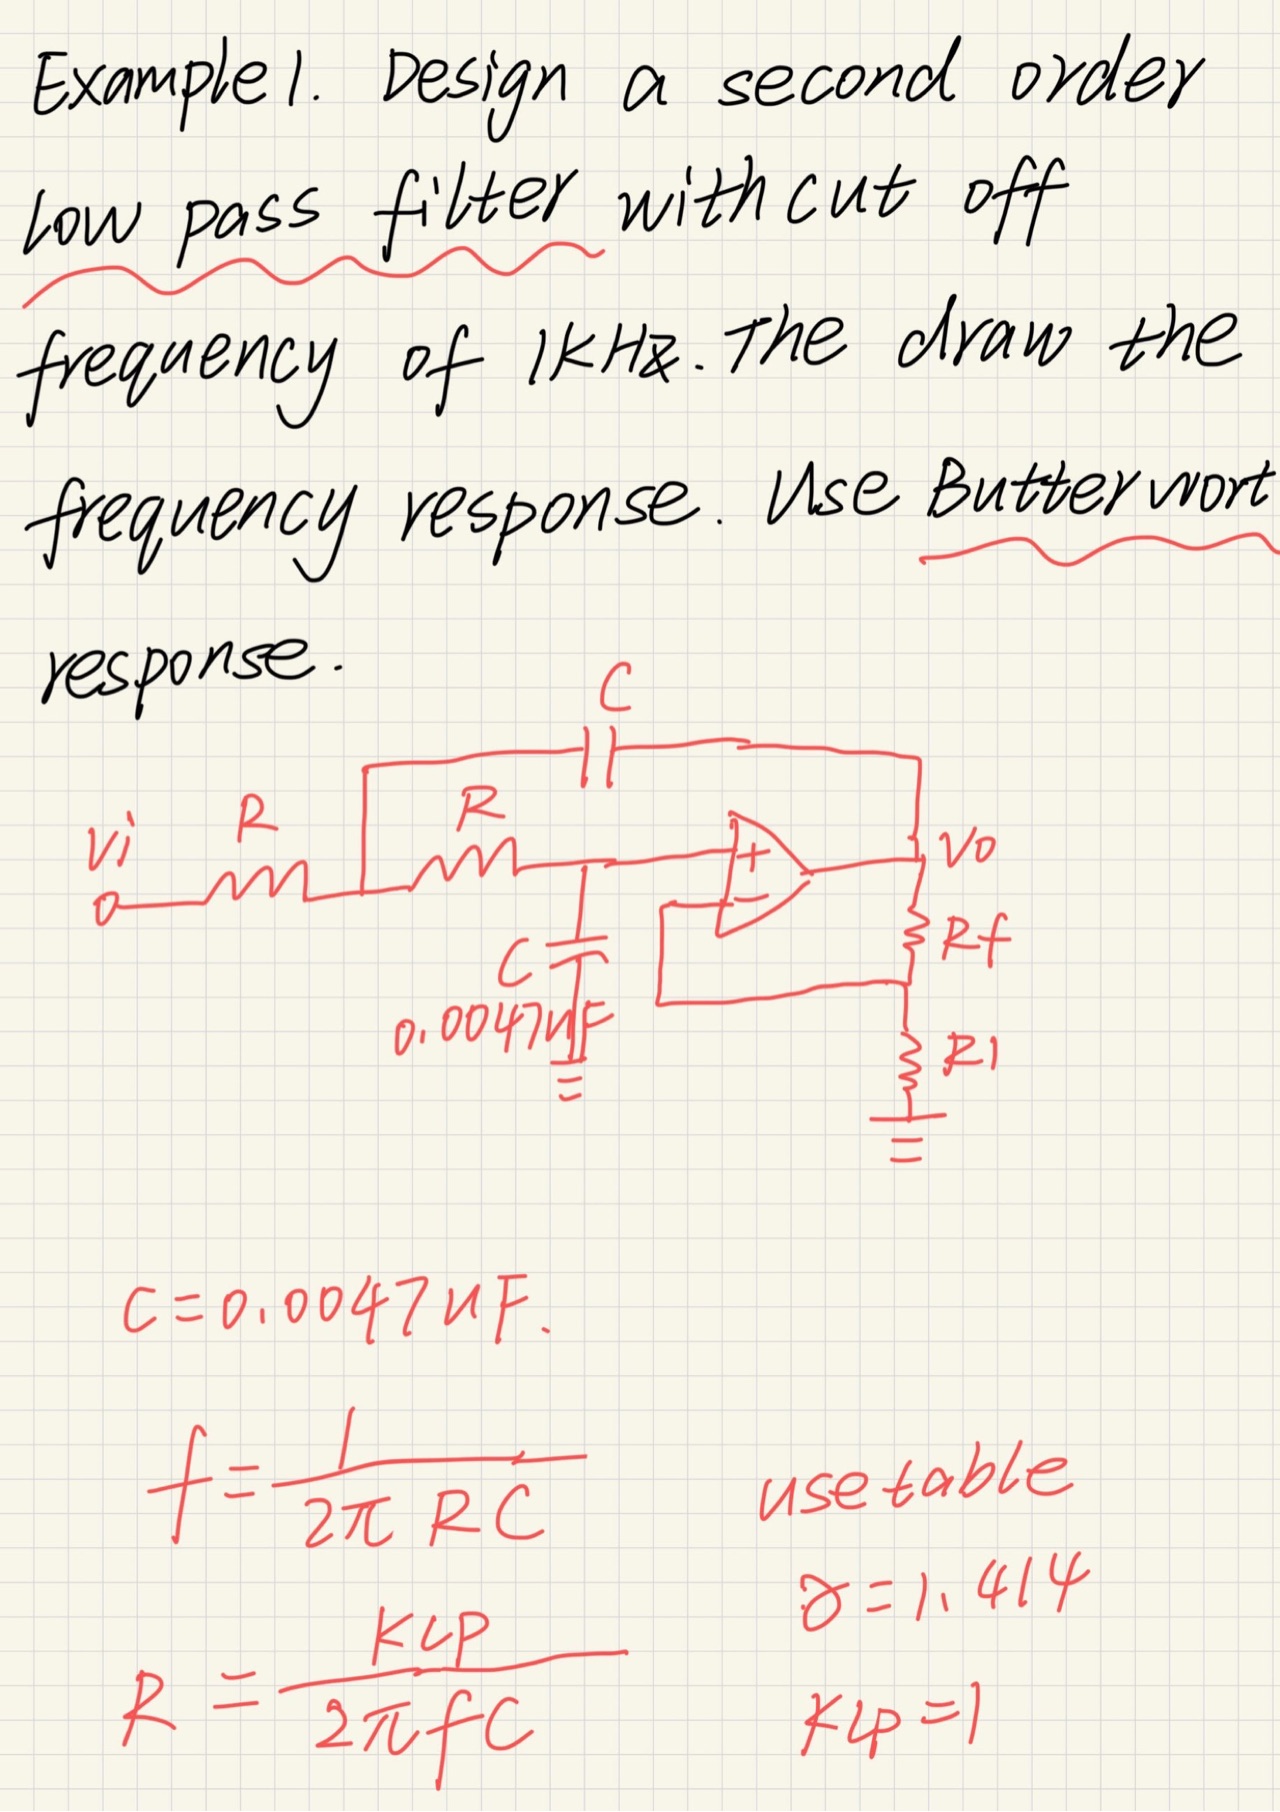 Example 1. Design a second order
low pass filter with cut off
frequency of 1KHz. The draw the
frequency response. Use Butterwort
response.
C
R
R
Vi
+
Vo
−
Rf
C
0.0047uF
R1
C=0.0047uF.
f = 1 / 2π RC
use table
γ=1.414
R = KLP / 2πfC
KLP=1